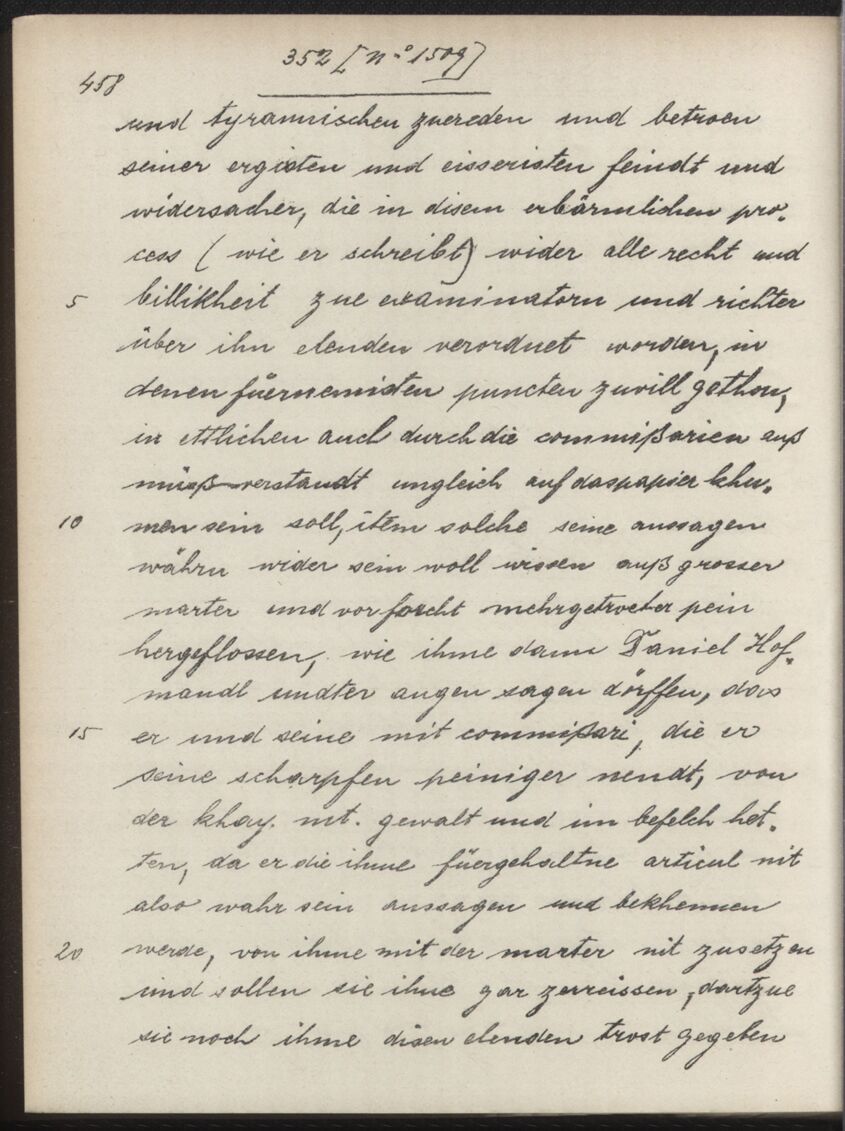 352 [nº 1509]
458
und tyrannischen zuereden und betroen
seiner ergisten und eisseristen feindt und
widersacher, die in disem erbärmlichen pro-
cess (wie er schreibt) wider alle recht und
5 billikheit zue examinatorn und richter
über ihn elenden verordnet worden, in
denen füernemisten puncten zuvill gethon,
in ettlichen auch durch die commißarien auß
müß verstandt ungleich auf das papier khu-
10 men sein soll, item solche seine aussagen
währn wider sein woll wissen auß grosser
marter und vor forcht mehrgetroeter pein
hergeflossen, wie ihme dann Daniel Hof-
mandl undter augen sagen dörffen, das
15 er und seine mit commißari, die er
seine scharpfen peiniger nendt, von
der khay. mt. gewalt und im befelch het-
ten, da er die ihme füergehaltne articul nit
also wahr sein aussagen und bekhennen
20 werde, von ihme mit der marter nit zusetzen
und sollen sie ihne gar zerreissen, dartzue
sie noch ihme disen elenden trost gegeben